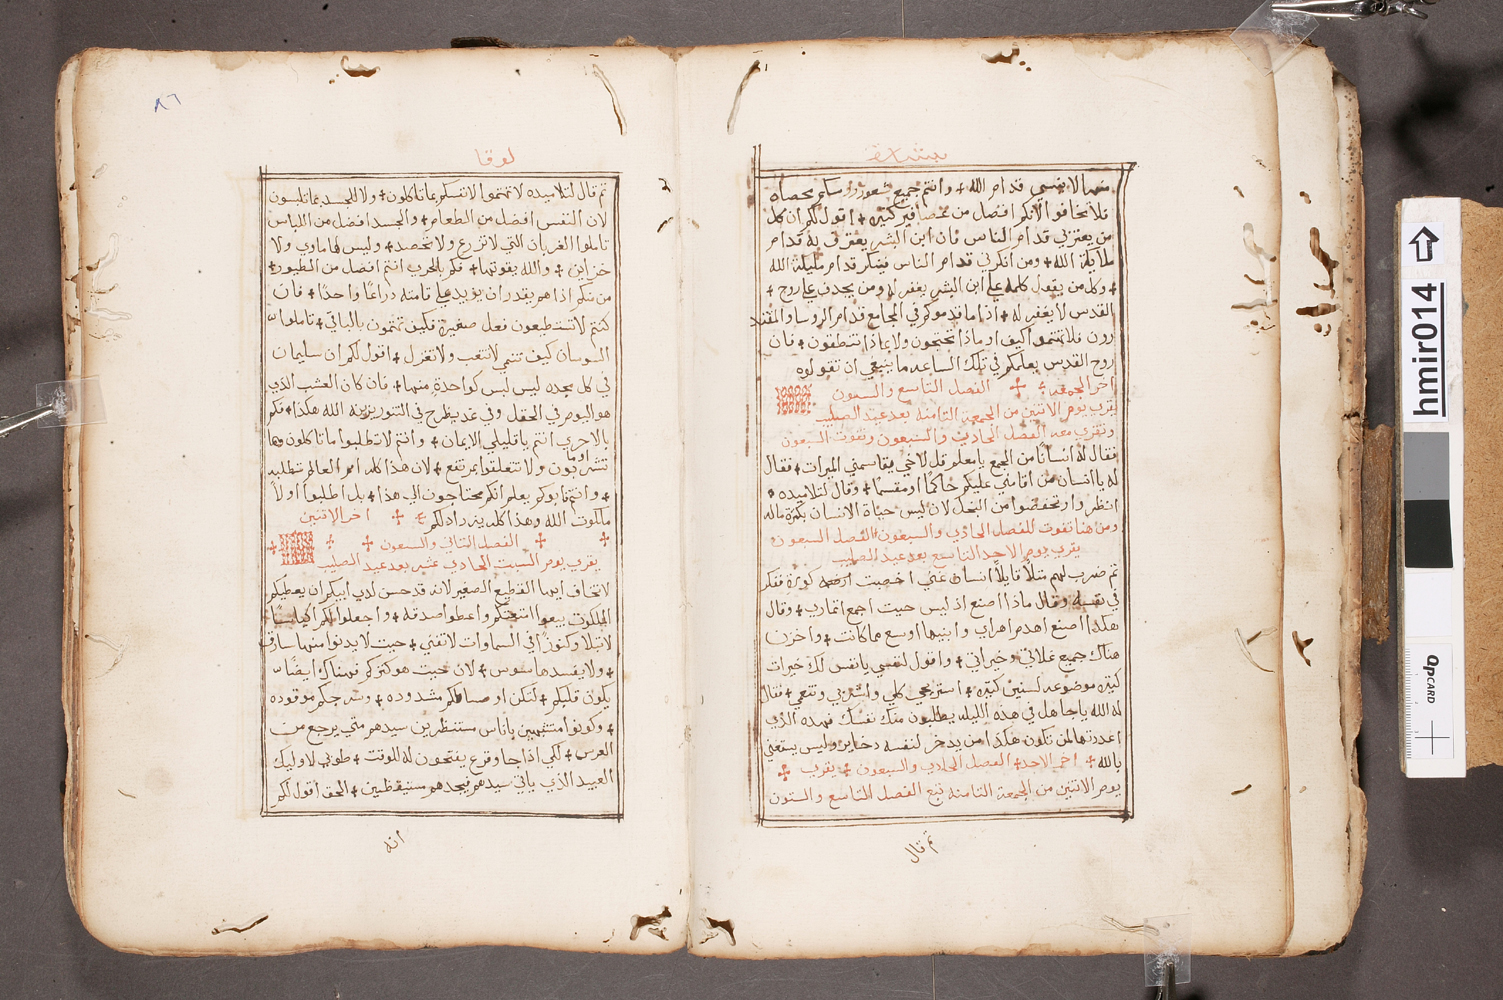 بشارة
منها لا ينسي قدام الله + وانتم جميع شعور روسكم محصاه
فلا تخافوا لانكم افضل من عصافير كثيره + اقول لكم ان كل
من يعترف بي قدام الناس فان ابن البشر يعترف به قدام
ملايكة الله + ومن انكرني قدام الناس فينكر قدام مليكة الله
+ وكل من يقول كلمه علي ابن البشر يغفر له ومن يجدف علي روح +
القدس لا يغفر له + اذا ما قدموكم في المجامع قدام الروسا والمقتد
رون فلا تهتموا كيف او ماذا تحتجون ولا بماذا تنطقون + فان
روح القدس يعلمكم في تلك الساعه ما ينبغي ان تقولوه
اخر الجمعه + الفصل التاسع والستون
يقرى يوم الاثنين من الجمعة الثامنه بعد عيد الصليب
وتقرى معه الفصل الحادي والسبعون وتفوت السبعون
فقال له انسانا من الجمع يا معلم قل لاخي يقاسمني الميرات + فقال
له يا انسان من اقامني عليكم حاكما او مقسما + وقال لتلاميده
انظروا وتحفظوا من البخل لان ليس حياة الانسان بكثرة ماله
ومن هنا تفوت للفصل الحادي والسبعون الفصل السبعون
يقرى يوم الاحد التاسع بعد عيد الصليب
تم ضرب لهم متلا قايلا انسان غني اخصبت ارضه كورة ففكر
في نفسه وقال ماذا اصنع اذ ليس حيت اجمع اتماري + وقال
هكذا اصنع اهدم اهراي وابنيها اوسع مما كانت + واخزن
هناك جميع غلاتي وخيراتي + واقول لنفسي يا نفس لك خيرات
كثيره موضوعه لسنين كثيره + استريحي كلي واشربي وتنعمي + فقال
له الله يا جاهل في هذه الليله يطلبون منك نفسك فهذه الذي
اعددتها لمن تكون هكذا من يدخر لنفسه دخاير وليس يستغني
بالله + اخر الاحد + الفصل الحادي والسبعون + يقرى
يوم الاثنين من الجمعة الثامنه تبع الفصل التاسع والستون
ثم قال
لوقا
٨٦
ثم قال لتلاميده لا تهتموا لانفسكم بما تاكلون + ولا للجسد بما تلبسون
لان النفس افضل من الطعام + والجسد افضل من اللباس
تاملوا الغربان التي لا تزرع ولا تحصد + وليس لها ماوي ولا
خزاين + والله يقوتها + فكم بالحري انتم افضل من الطيور +
من منكم اذا هم يقدر ان يزيد علي قامته دراعا واحدا + فان
كنتم لا تستطيعون فعل صغيرة فكيف تهتمون بالباقي + تاملوا
السوسان كيف تنمي لا تتعب ولا تغزل + اقول لكم ان سليمان
في كل مجده ليس لبس كواحدة منها + فان كان العشب الذي
هو اليوم في الحقل وفي غد يطرح في التنور يزينه الله هكذا + فكم
بالاحري انتم يا قليلي الايمان + وانتم لا تطلبوا ما تاكلون وما
تشربون ولا تتعلقوا بمرتفع + لان هذا كله امم العالم تطلبه
+ وانتم فابوكم يعلم انكم محتاجون الي هذا + بل اطلبوا اولا
ملكوت الله وهذا كله يزداد لكم + اخر الاثنين
+ الفصل التاني والسبعون +
يقرى يوم السبت الحادي عشر بعد عيد الصليب
لا تخاف ايها القطيع الصغير لانه قد حسن لدي ابيكم ان يعطيكم
الملكوت بيعوا امتعتكم واعطوا صدقة + واجعلوا لكم اكياسا
لا تبلا وكنوزا في السماوات لا تفني + حيت لا يدنوا منها سارق
+ ولا يفسدها سوس + لان حيت هو كنزكم فهناك ايضا
يكون قلبكم + لتكن اوساطكم مشدوده + وسرجكم موقوده
+ وكونوا متشبهين باناس مستنظرين سيدهم متي يرجع من
العرس + لكي اذا جا وقرع يفتحون له للوقت + طوبي لاوليك
العبيد الذي ياتي سيدهم فيجدهم مستيقظين + الحق اقول لكم
انه
hmir014
QPCARD